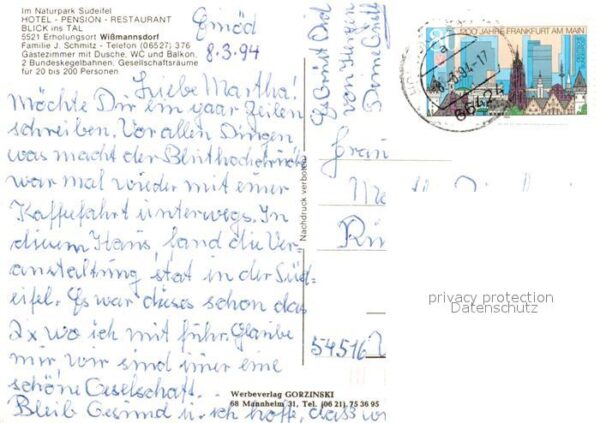 Im Naturpark Südeifel
HOTEL - PENSION - RESTAURANT
BLICK ins TAL
5521 Erholungsort Wißmannsdorf
Familie J. Schmitz - Telefon (06527) 376
Gästezimmer mit Dusche, WC und Balkon,
2 Bundeskegelbahnen, Gesellschaftsräume
für 20 bis 200 Personen
Einöd
8.3.94
Luebe Martha!
Möchte Dir ein paar Zeilen
schreiben. Vor allen Dingen
was macht der Bluthochdruck
war mal wieder mit einer
Kaffefahrt unterwegs. In
diesem Haus, fand die Ver-
anstaltung stat in der Süd-
eifel. Es war dieses schon das
2x wo ich mit fuhr. Glaube
mir, wir sind imer eine
schöne Geselschaft.
Bleib Gesund u. ich hoffe, dass
Es Grüßt Dich
von
Nachdruck verboten
1200 JAHRE FRANKFURT AM MAIN
80
66424
Frau
54516
privacy protection
Datenschutz
Werbeverlag GORZINSKI
68 Mannheim 31, Tel. (06 21) 75 36 95